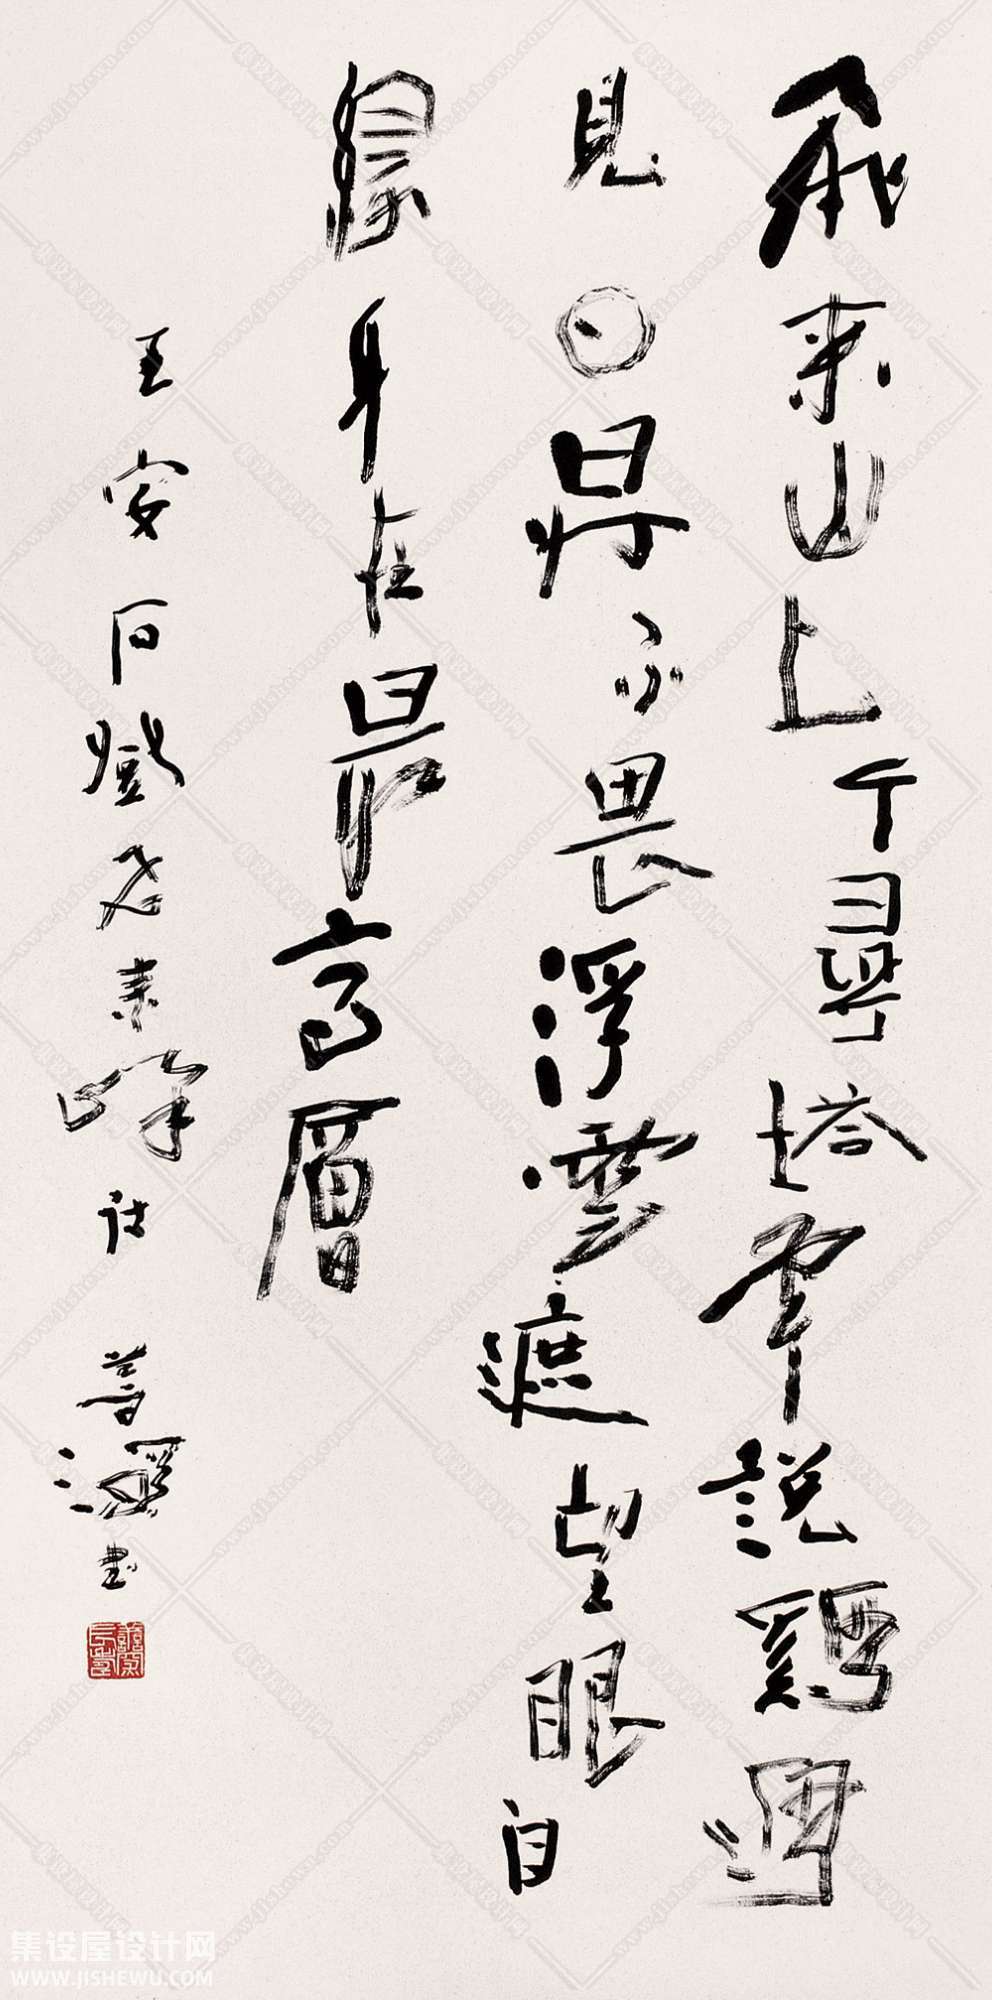 飛來山上千尋塔聞說鷄鳴
見日昇不畏浮雲遮望眼自
緣身在最高層
王安石登飛來峰詩 書
集设屋设计网
WWW.JISHEWU.COM